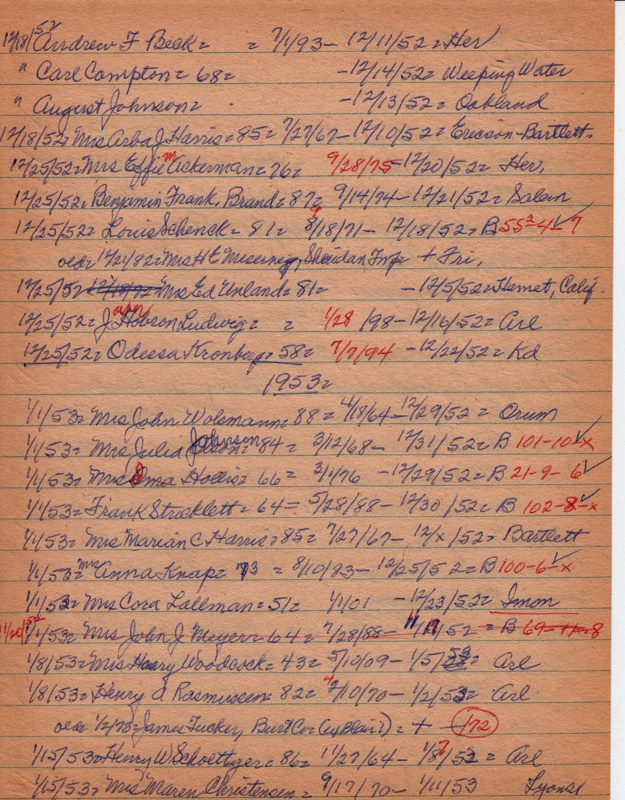 12/18/52 Andrew F Beck = = 7/1/93 - 12/11/52 = Her
" Carl Compton = 68 = - 12/14/52 = Weeping Water
" August Johnson = - 12/13/52 = Oakland
12/18/52 = Mrs Arba J. Harris = 85 = 7/27/67 - 12/10/52 = Ericson-Bartlett.
12/25/52 = Mrs Effie M Ackerman = 76 = 9/28/75 - 12/20/52 = Her.
12/25/52 = Benjamin Frank. Brand = 87 = 9/14/74 - 12/21/52 = Salem
12/25/52 = Louis Schenck = 81 = 8/18/71 - 12/18/52 = B 55-2-4-7
12/21/82 = Mrs H E Sheridan Twp + Fri,
12/25/52 Mrs Ed Unland = 81 = - 12/5/52 = Hemet, Calif.
12/25/52 = J Hobson Ludwig = = 1/28/98 - 12/16/52 = Arl
12/25/52 = Odessa Kronberg = 58 = 7/7/94 - 12/22/52 = Kd
1953 =
1/1/53 = Mrs John Wolsmann = 88 = 4/18/64 - 12/29/52 = Orum
1/1/53 = Mrs Julia Johnson 84 = 3/12/68 - 12/31/52 = B 101-10-x
1/1/53 = Mrs Hollis = 66 = 3/1/76 - 12/29/52 = B 21-9-6
1/1/53 = Frank Stricklett = 64 = 5/28/88 - 12/30/52 = B 102-8-x
1/1/53 = Mrs Marian C. Harris = 85 = 7/27/67 - 12/x/52 = Bartlett
1/1/53 = Mrs Anna Knap = 73 = 8/10/83 - 12/25/52 = B 100-6-x
1/1/53 = Mrs Cora Lallman = 51 = 1/1/01 - 12/23/52 = Irvington
11/20/52 1/1/53 = Mrs John J Meyer = 64 = 7/28/88 - 11/17/52 = B 69-11-8
1/8/53 = Mrs Harry Woodcock = 43 = 5/10/09 - 1/5/53 = Arl
1/8/53 = Henry A Rasmussen = 82 = 4/10/70 - 1/2/53 = Arl
1/2/73 = James Tucker, Burt Co (by Blair) = + 172
1/15/53 = Henry W Schoettger = 86 = 11/27/64 - 1/7/53 = Arl
1/15/53 = Mrs Maren Christensen = 9/17/70 - 1/11/53 Lyons